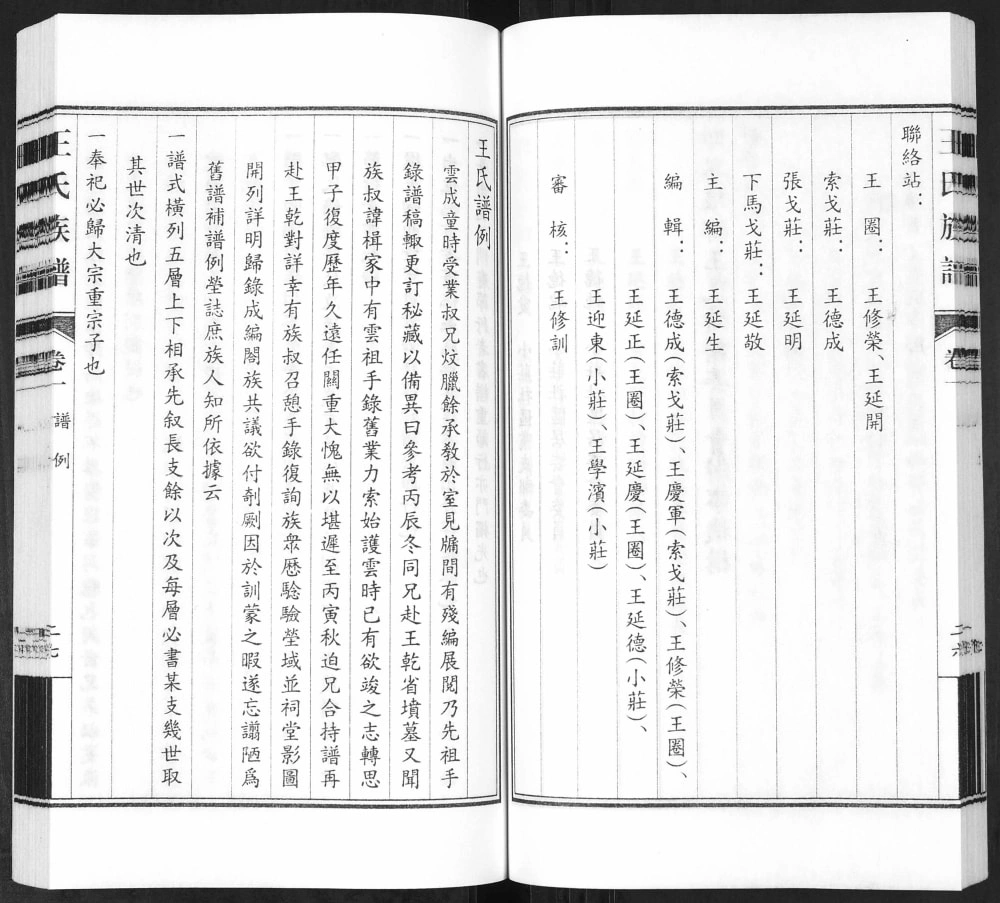 王氏族譜
卷一
二六
聯絡站：
王　圈：　王修榮、王延開
索戈莊：　王德成
張戈莊：　王延明
下馬戈莊：　王延敬
主　編：　王延生
編　輯：　王德成（索戈莊）、王慶軍（索戈莊）、王修榮（王圈）、
王延正（王圈）、王延慶（王圈）、王延德（小莊）、
王迎東（小莊）、王學濱（小莊）
審　核：　王修訓
王氏譜例
雲成童時受業叔兄炆臘餘承教於室見牖間有殘編展閱乃先祖手
錄譜稿輙更訂秘藏以備異日參考丙辰冬同兄赴王乾省墳墓又聞
族叔諱楫家中有雲祖手錄舊業力索始護雲時已有欲竣之志轉思
甲子復度歷年久遠任關重大愧無以堪遲至丙寅秋迫兄合持譜再
赴王乾對詳幸有族叔召憩手錄復詢族衆歷驗塋域並祠堂影圖
開列詳明歸錄成編閤族共議欲付剞劂因於訓蒙之暇遂忘譾陋爲
舊譜補譜例塋誌庶族人知所依據云
一譜式橫列五層上下相承先叙長支餘以次及每層必書某支幾世取
其世次清也
一奉祀必歸大宗重宗子也
王氏族譜
卷一
譜例
二七